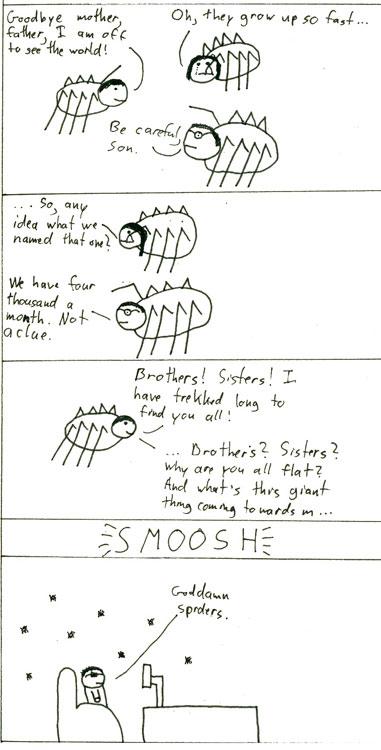 Goodbye mother,
father, I am off
to see the world!
Oh, they grow up so fast...
Be careful,
son.
... So, any
idea what we
named that one?
We have four
thousand a
month. Not
a clue.
Brothers! Sisters! I
have trekked long to
find you all!
... Brothers? Sisters?
Why are you all flat?
And what's this giant
thing coming towards m...
SMOOSH
Goddamn
spiders.